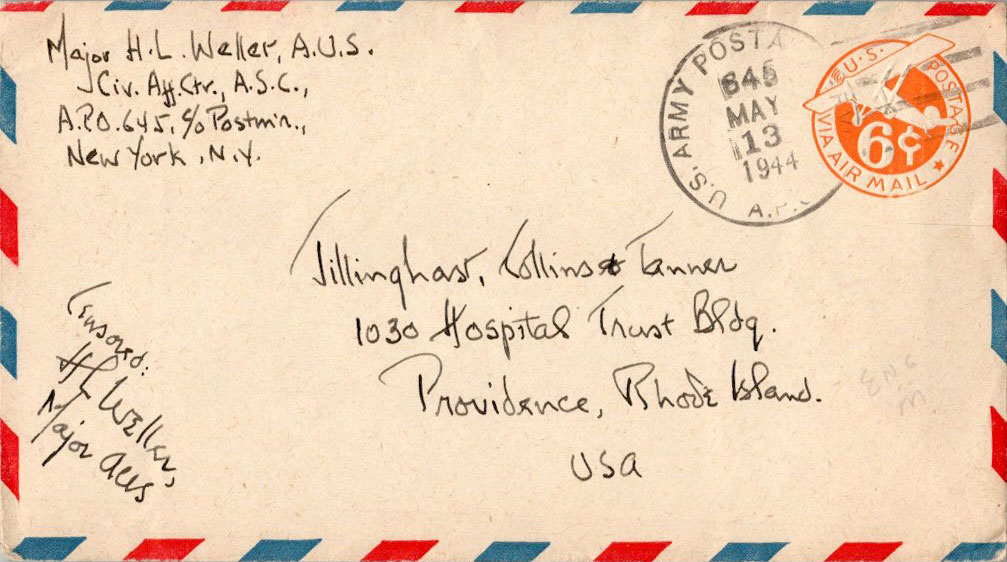 Major H. L. Weller, A.U.S.
Civ. Aff. Ctr., A.S.C.,
A.P.O. 645, c/o Postm'r.,
New York, N.Y.
U.S. ARMY POSTA
645
MAY
13
1944
A.P.
U.S. POSTAGE
6¢
VIA AIR MAIL
Tillinghast, Collins & Tanner
1030 Hospital Trust Bldg.
Providence, Rhode Island.
USA
Censored:
HL Weller,
Major AUS